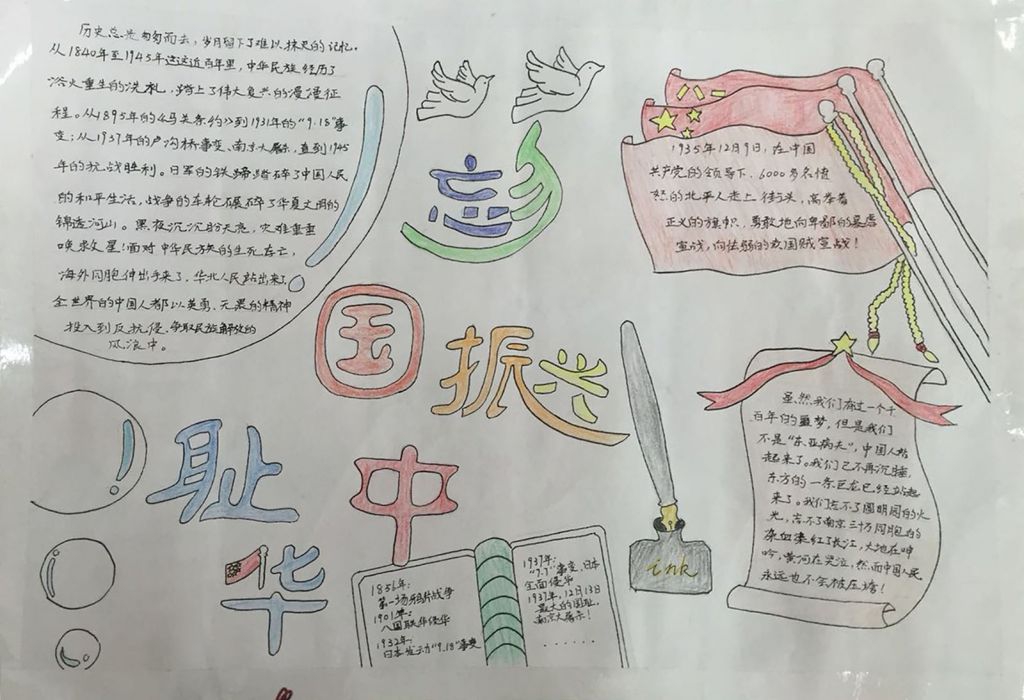 历史总是匆匆而去，岁月留下了难以抹灭的记忆。
从1840年至1945年这这近百年里，中华民族经历了
浴火重生的洗礼，踏上了伟大复兴的漫漫征
程。从1895年的《马关条约》到1931年的“9.18”事
变；从1937年的卢沟桥事变、南京大屠杀，直到1945
年的抗战胜利。日军的铁蹄踏碎了中国人民
的和平生活，战争的车轮碾碎了华夏文明的
锦绣河山。黑夜沉沉盼天亮，灾难重重
唤救星！面对中华民族的生死存亡，
海外同胞伸出手来了，华北人民站出来了
全世界的中国人都以英勇、无畏的精神
投入到反抗侵、争取民族解放的
风浪中。
勿忘
国
耻
振兴
中
华
1935年12月9日，在中国
共产党的领导下，6000多名愤
怒的北平人走上街头，高举着
正义的旗帜，勇敢地向卑鄙的暴虐
宣战，向怯弱的卖国贼宣战！
虽然我们有过一个千
百年的噩梦，但是我们
不是“东亚病夫”，中国人站
起来了。我们已不再沉睡，
东方的一条巨龙已经站起
来了。我们忘不了圆明园的火
光，忘不了南京三十万同胞的
鲜血染红了长江，大地在呻
吟，黄河在哭泣，然而中国人民
永远也不会被压垮！
ink
1851年：
第一场鸦片战争
1901年：
八国联军侵华
1932年：
日本发动“9.18”事变
1937年：
“7.7”事变，日本
全面侵华
1937年，12月13日
最大的国耻，
南京大屠杀！
......